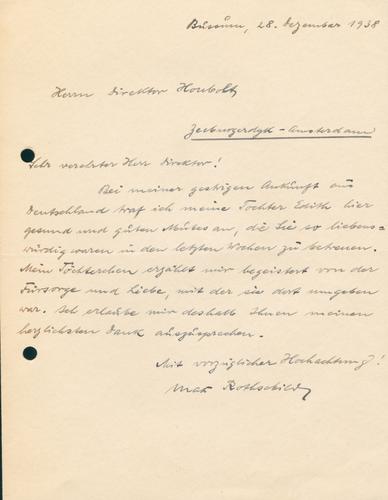 Bussum, 28. Dezember 1938
Herrn Direktor Houbolt,
Zeeburgerdyk - Amsterdam
Sehr verehrter Herr Direktor!
Bei meiner gestrigen Ankunft aus
Deutschland traf ich meine Tochter Edith hier
gesund und guten Mutes an, die Sie so liebens-
würdig waren in den letzten Wochen zu betreuen.
Mein Töchterchen erzählt mir begeistert von der
Fürsorge und Liebe, mit der sie dort umgeben
war. Ich erlaube mir deshalb Ihnen meinen
herzlichsten Dank auszusprechen.
Mit vorzüglicher Hochachtung!
Max Rothschild